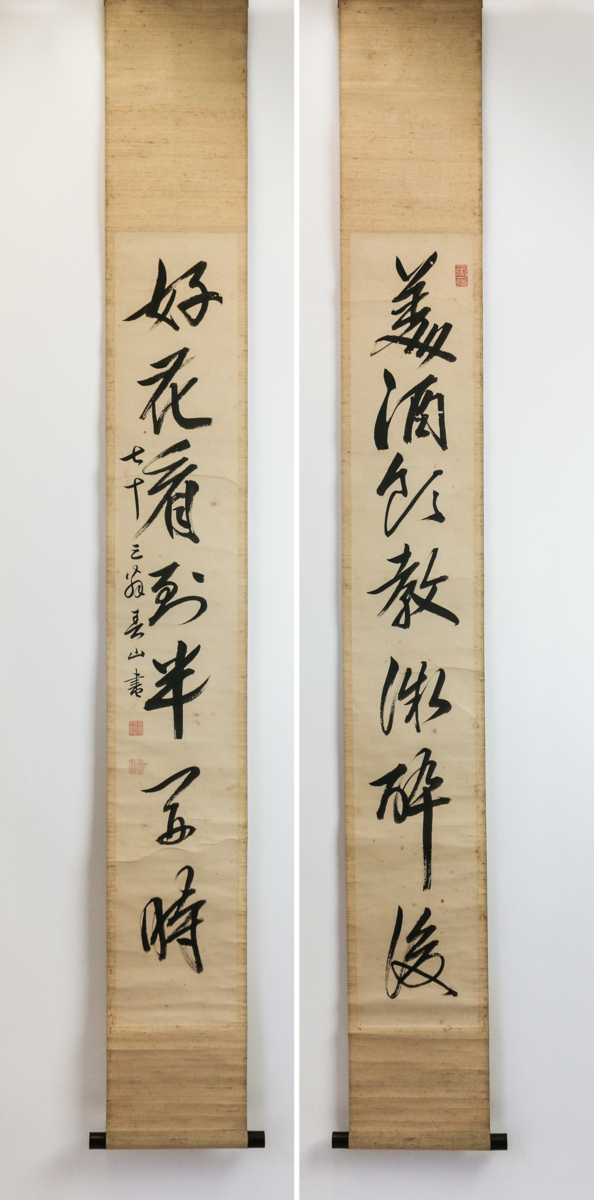 美酒飲教微醉後
好花看到半開時
七十三翁春山書